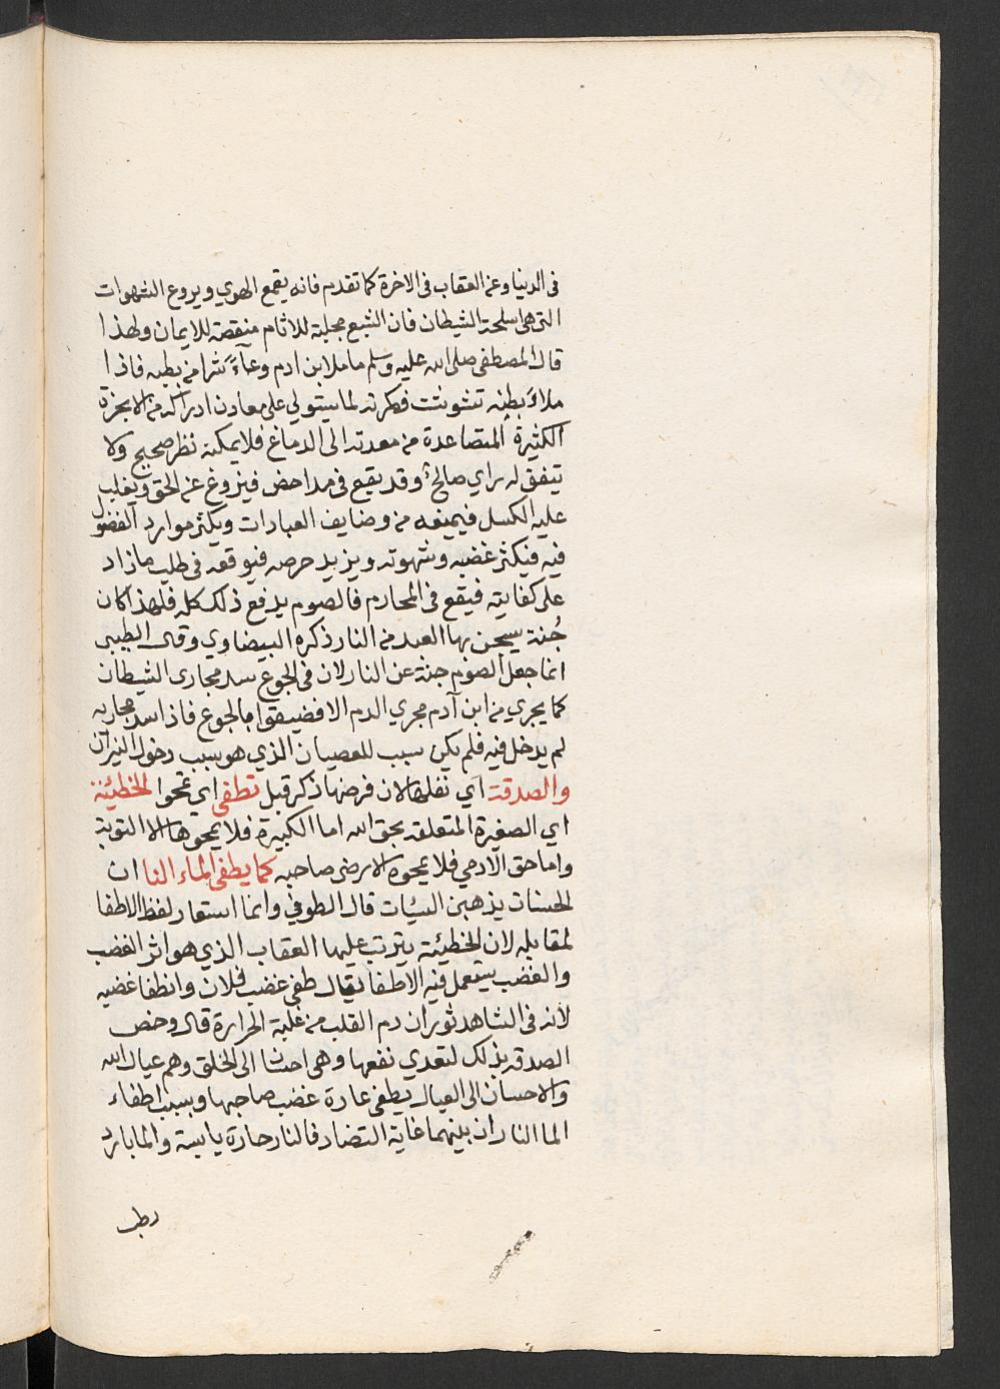 فى الدنيا وعن العقاب فى الاخرة كما تقدم فانه يقمع الهوي ويروع الشهوات
التى هى اسلحة الشيطان فان الشبع مجلبة للاثام منقصة للايمان ولهذا
قال المصطفى صلى الله عليه وسلم ما ملا ابن ادم وعآءً شرا من بطنه فاذا
ملاءَ بطنه تشوشت فكرته لما يستولي على معادن ادراكه من الابخرة
الكثيرة المتصاعدة من معدته الى الدماغ فلا يمكنه نظر صحيح ولا
يتفق له راي صالح وقد يقع فى مداحض فيزوغ عن الحق ويغلب
عليه الكسل فيمنعه من وضايف العبادات ويكثر موارد الفضول
فيه فيكثر غضبه وشهوته ويزيد حرصه فيوقعه فى طلب ما زاد
على كفايته فيقع فى المحارم فالصوم يدفع ذلك كله فلهذا كان
جُنة يسجن بها العبد من النار ذكره البيضاوي وقال الطيبى
انما جعل الصوم جنة عن النار لان فى الجوع سد مجارى الشيطان
كما يجري من ابن آدم مجري الدم الا فضيقوا بالجوع فاذا سد مجاريه
لم يدخل فيه فلم يكن سبب للعصيان الذي هو سبب دخول النيران
والصدقة اي نفلها لان فرضها ذكر قبل تطفى اى تمحوا الخطيئة
اي الصغيرة المتعلقة بحق الله اما الكبيرة فلا يمحوها الا التوبة
واما حق الادمي فلا يمحوه الا رضى صاحبه كما يطفى الماء النا ان
الحسنات يذهبن السيئات قال الطوفي وانما استعار لفظ الاطفا
لمقابله لان الخطيئة يترتب عليها العقاب الذي هو اثر الغضب
والغضب يستعمل فيه الاطفا يقال طفى غضب فلان وانطفا غضبه
لانه فى الشاهد ثوران دم القلب من غلبة الحرارة قال وخص
الصدقه بذلك لتعدي نفعها وهى احسان الى الخلق وهم عيال الله
والاحسان الى العيال يطفى عادة غضب صاحبها وبسبب اطفاء
الما النار ان بينهما غاية التضاد فالنار حارة يابسة والما بارد
رطب